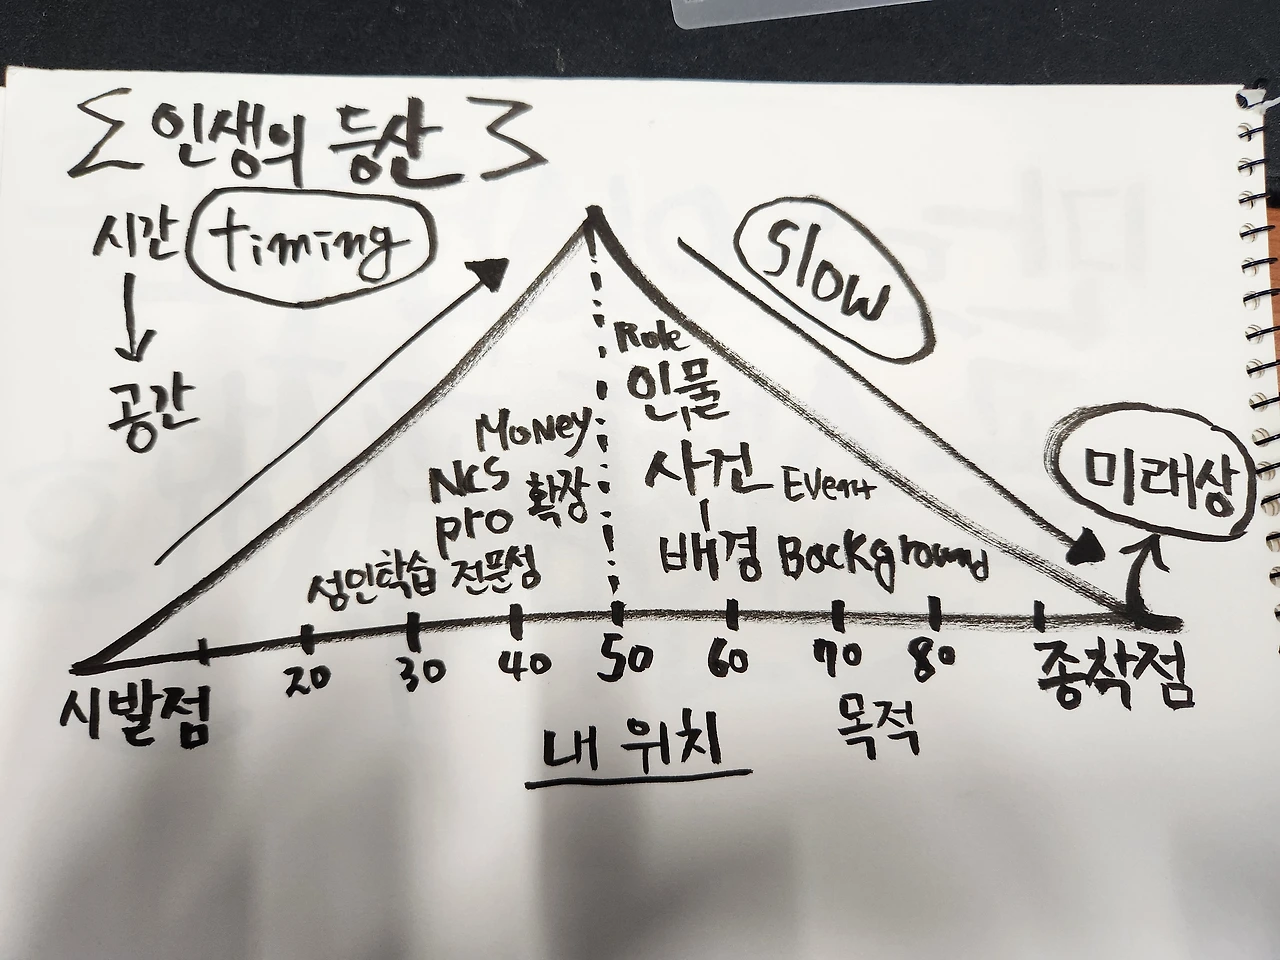 인생의 등산
시간 timing
공간
Slow
Role
인물
사건 Event
배경 Background
Money
NCS 확장
pro
성인학습 전문성
미래상
20 30 40 50 60 70 80
시발점 종착점
내 위치 목적